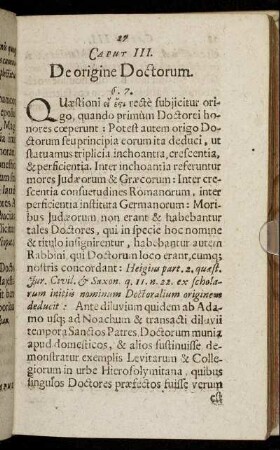 27
CAPUT III.
De origine Doctorum.
§. 7.
QUæstioni εἰ ἐςι rectè subjicitur ori-
go, quando primùm Doctorei ho-
nores cœperunt: Potest autem origo Do-
ctorum seu principia eorum ita deduci, ut
statuamus triplicia inchoantia, crescentia,
& perficientia. Inter inchoantia referuntur
mores Judæorum & Græcorum: Inter cre-
scentia consuetudines Romanorum, inter
perficientia instituta Germanorum: Mori-
bus Judæorum non erant & habebantur
tales Doctores, qui in specie hoc nomine
& titulo insignirentur, habebantur autem
Rabbini, qui Doctorum loco erant, cumq;
nostris concordant: Heigius part. 2. quæst.
Jur. Civil. & Saxon. q. 11. n. 22. ex schola-
rum initio nominum Doctoralium originem
deducit: Ante diluvium quidem ab Ada-
mo usq; ad Noachum & transacti diluvii
tempora Sanctos Patres, Doctorum munia
apud domesticos, & alios sustinuisse, de-
monstratur exemplis Levitarum & Colle-
giorum in urbe Hierosolymitana, quibus
singulos Doctores præfectos fuisse verum
est